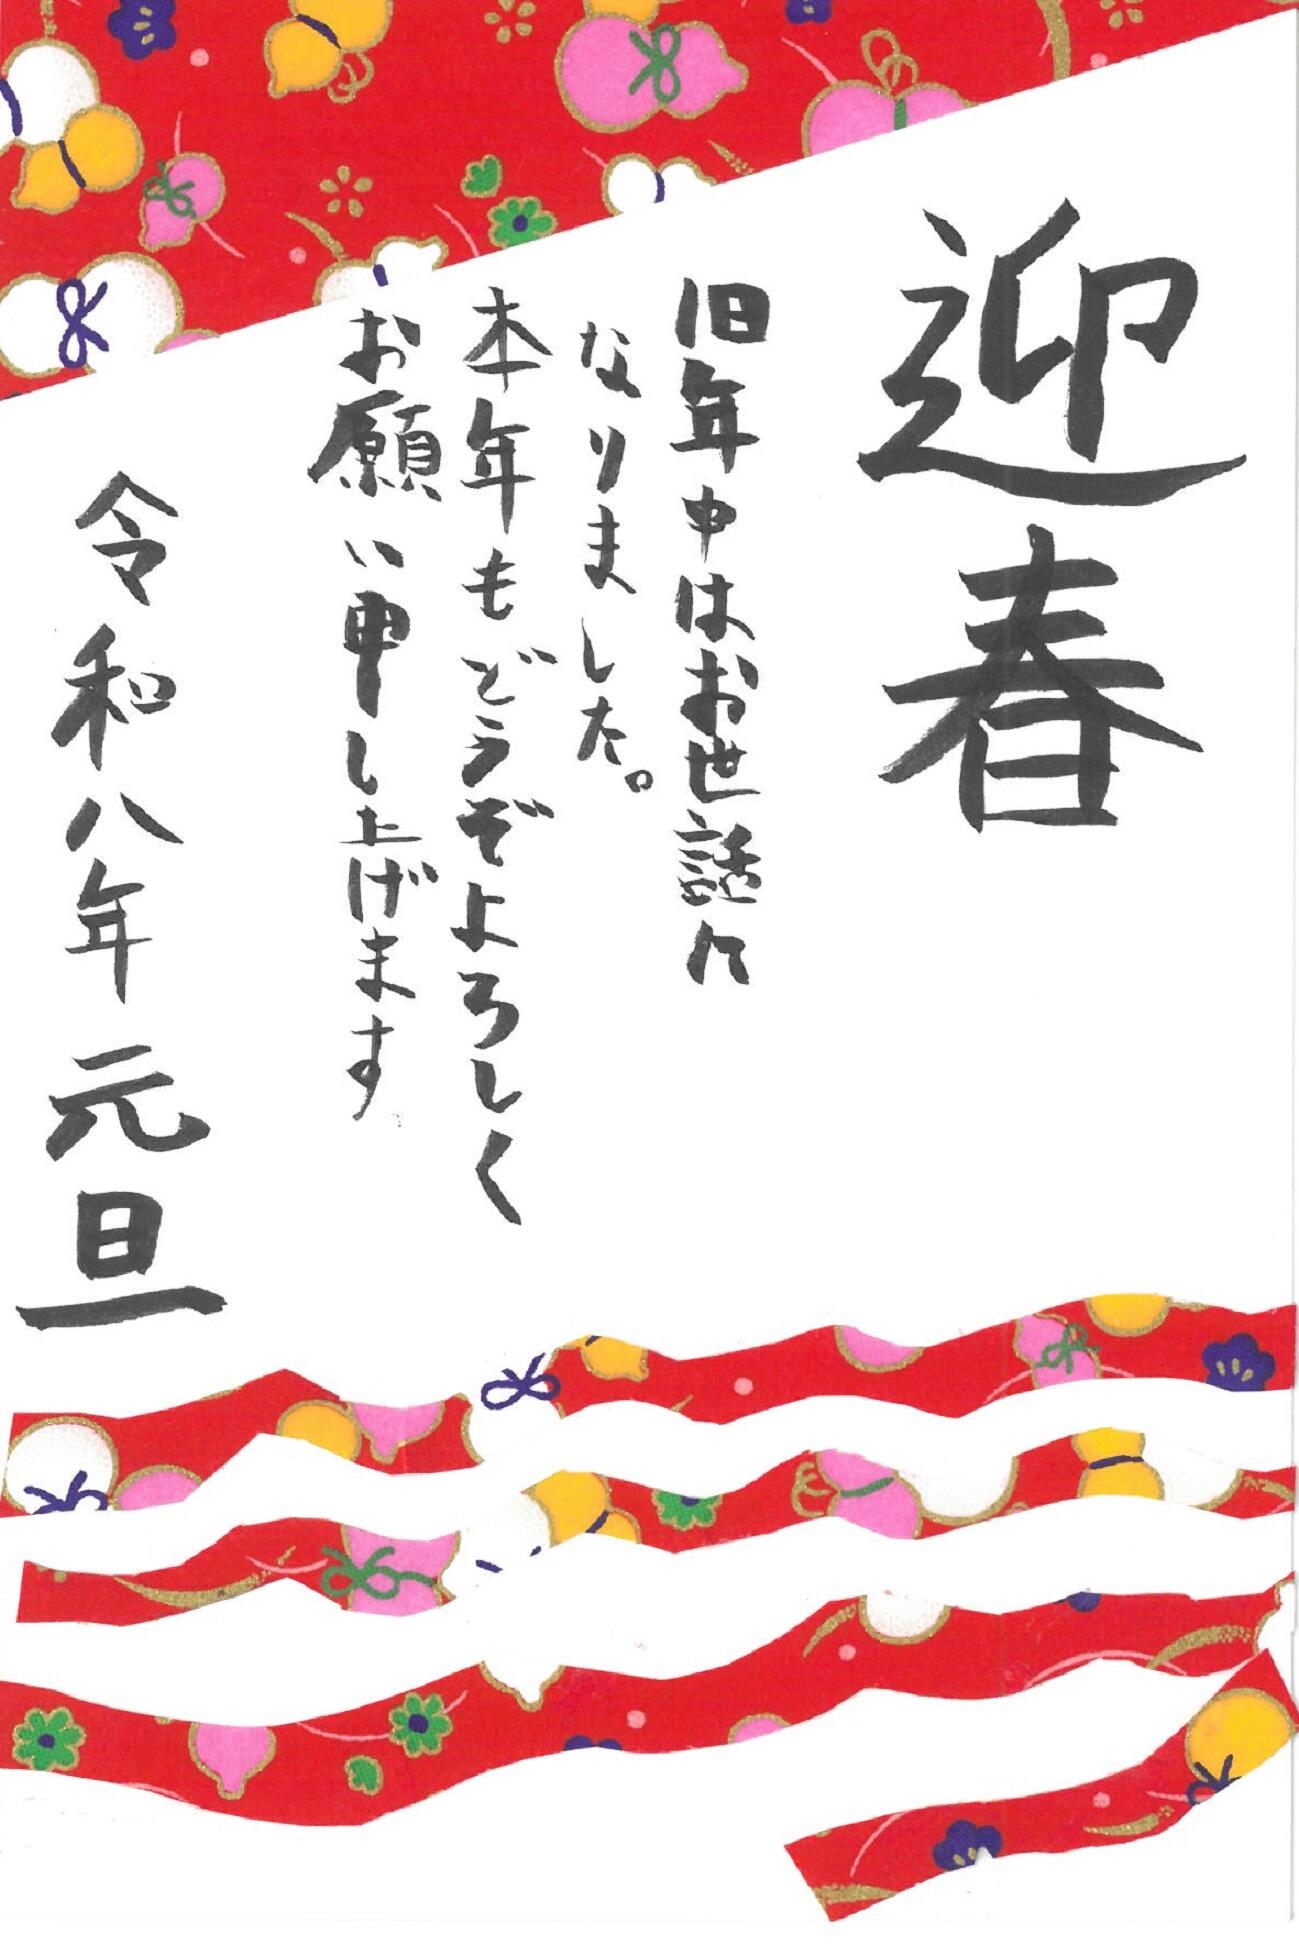 迎春
旧年中はお世話に
なりました。
本年もどうぞよろしく
お願い申し上げます
令和八年 元旦